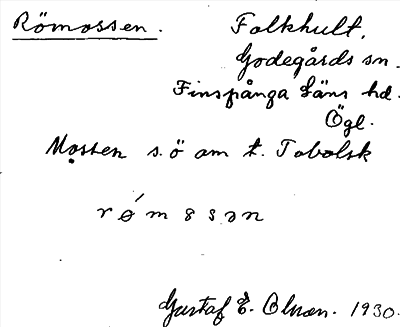 Römossen.
Falkhult,
Godegårds sn.
Finspånga läns hd.
Ögl.
Mossen s.ö om t. Tobolsk
rǿmosən
Gustaf E. Olson. 1930.